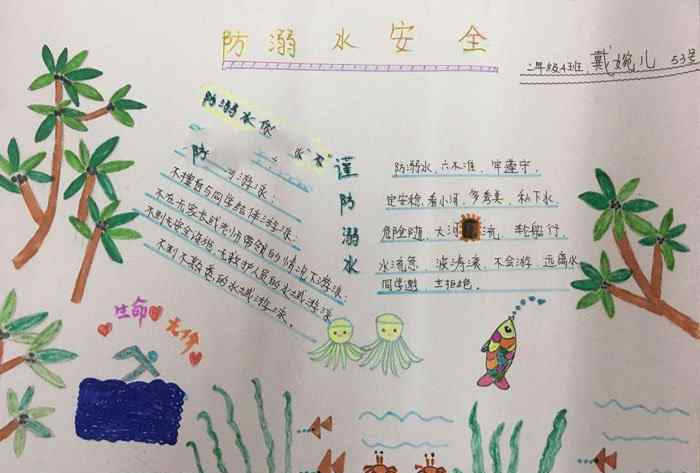 防溺水安全
二年级4班 戴婉儿 53号
防溺水
防 游泳:
不擅自与同学结伴游泳;
不在无家长或老师带领的情况下游泳;
不到无安全设施、无救护人员的水域游泳
不到不熟悉的水域游泳。
谨防溺水
防溺水,六不准,牢遵守,
定安稳,看小河,多秀美,私下水,
危险随,大河 流,轮船行,
水流急,波涛滚,不会游,远离水
同学邀 拒绝。
生命 无价